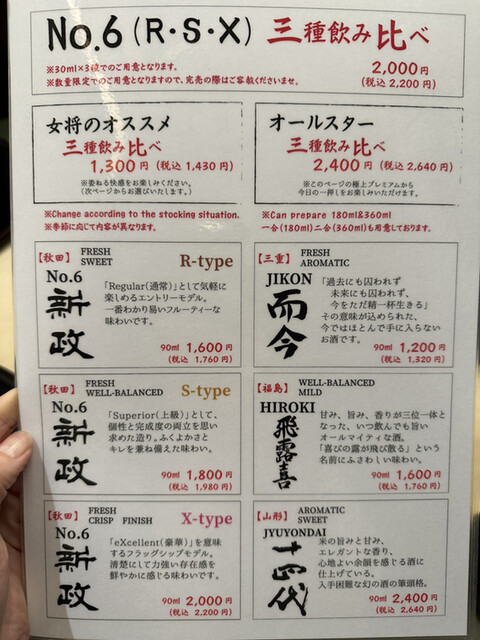 No.6 (R・S・X) 三種飲み比べ
※30ml×3種でのご用意となります。
※数量限定でのご用意となりますので、完売の際はご容赦くださいませ。
2,000円
(税込 2,200円)
女将のオススメ
三種飲み比べ
1,300円 (税込 1,430円)
※委ねる快感をお楽しみください。
(次ページからお選びいたします。)
オールスター
三種飲み比べ
2,400円 (税込 2,640円)
※このページの極上プレミアムから
今日の一押しをお楽しみいただけます。
※Change according to the stocking situation.
※季節に応じて内容が異なります。
※Can prepare 180ml&360ml
一合(180ml)二合(360ml)も用意しております。
【秋田】 FRESH
SWEET
R-type
No.6
新政
「Regular(通常)」として気軽に
楽しめるエントリーモデル。
一番わかり易いフルーティーな
味わいです。
90ml 1,600円
(税込 1,760円)
【三重】 FRESH
AROMATIC
JIKON
而今
「過去にも囚われず
未来にも囚われず、
今をただ精一杯生きる」
その意味が込められた、
今ではほとんで手に入らない
お酒です。
90ml 1,200円
(税込 1,320円)
【秋田】 FRESH
WELL-BALANCED
S-type
No.6
新政
「Superior(上級)」として、
個性と完成度の両立を思い
求めた造り。ふくよかさと
キレを兼ね備えた味わい。
90ml 1,800円
(税込 1,980円)
【福島】 WELL-BALANCED
MILD
HIROKI
飛露喜
甘み、旨み、香りが三位一体と
なった、いつ飲んでも旨い
オールマイティな酒。
「喜びの露が飛び散る」という
名前にふさわしい味わい。
90ml 1,600円
(税込 1,760円)
【秋田】 FRESH
CRISP FINISH
X-type
No.6
新政
「eXcellent(豪華)」を意味
するフラッグシップモデル。
清楚にして力強い存在感を
鮮やかに感じる味わいです。
90ml 2,000円
(税込 2,200円)
【山形】 AROMATIC
SWEET
JYUYONDAI
十四代
米の旨みと甘み、
エレガントな香り、
心地よい余韻を感じる酒に
仕上げている。
入手困難な幻の酒の筆頭格。
90ml 2,400円
(税込 2,640円)